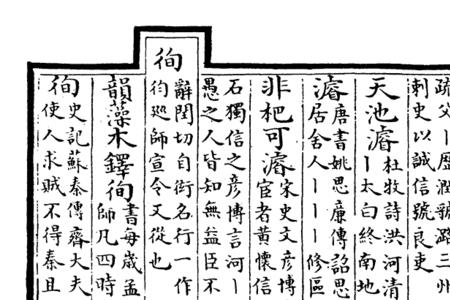 疏父丨歷潤虢潞三州
刺史以誠信號良吏
天池濬
杜牧詩洪河清
丨太白終南地
濬
唐書姚思廉傳詔思
居舍人丨丨丨修區
非杷可濬
宋史文彥博
宦者黃懷信
石獨信之彥博言河丨
愚之人皆知無益臣不
徇
辭閏切自衒名行一作
㣙巡師宣令又從也
韻藻木鐸徇
書每歲孟
師凡四時
徇
史記蘇秦傳齊大夫
使人求賊不得秦且